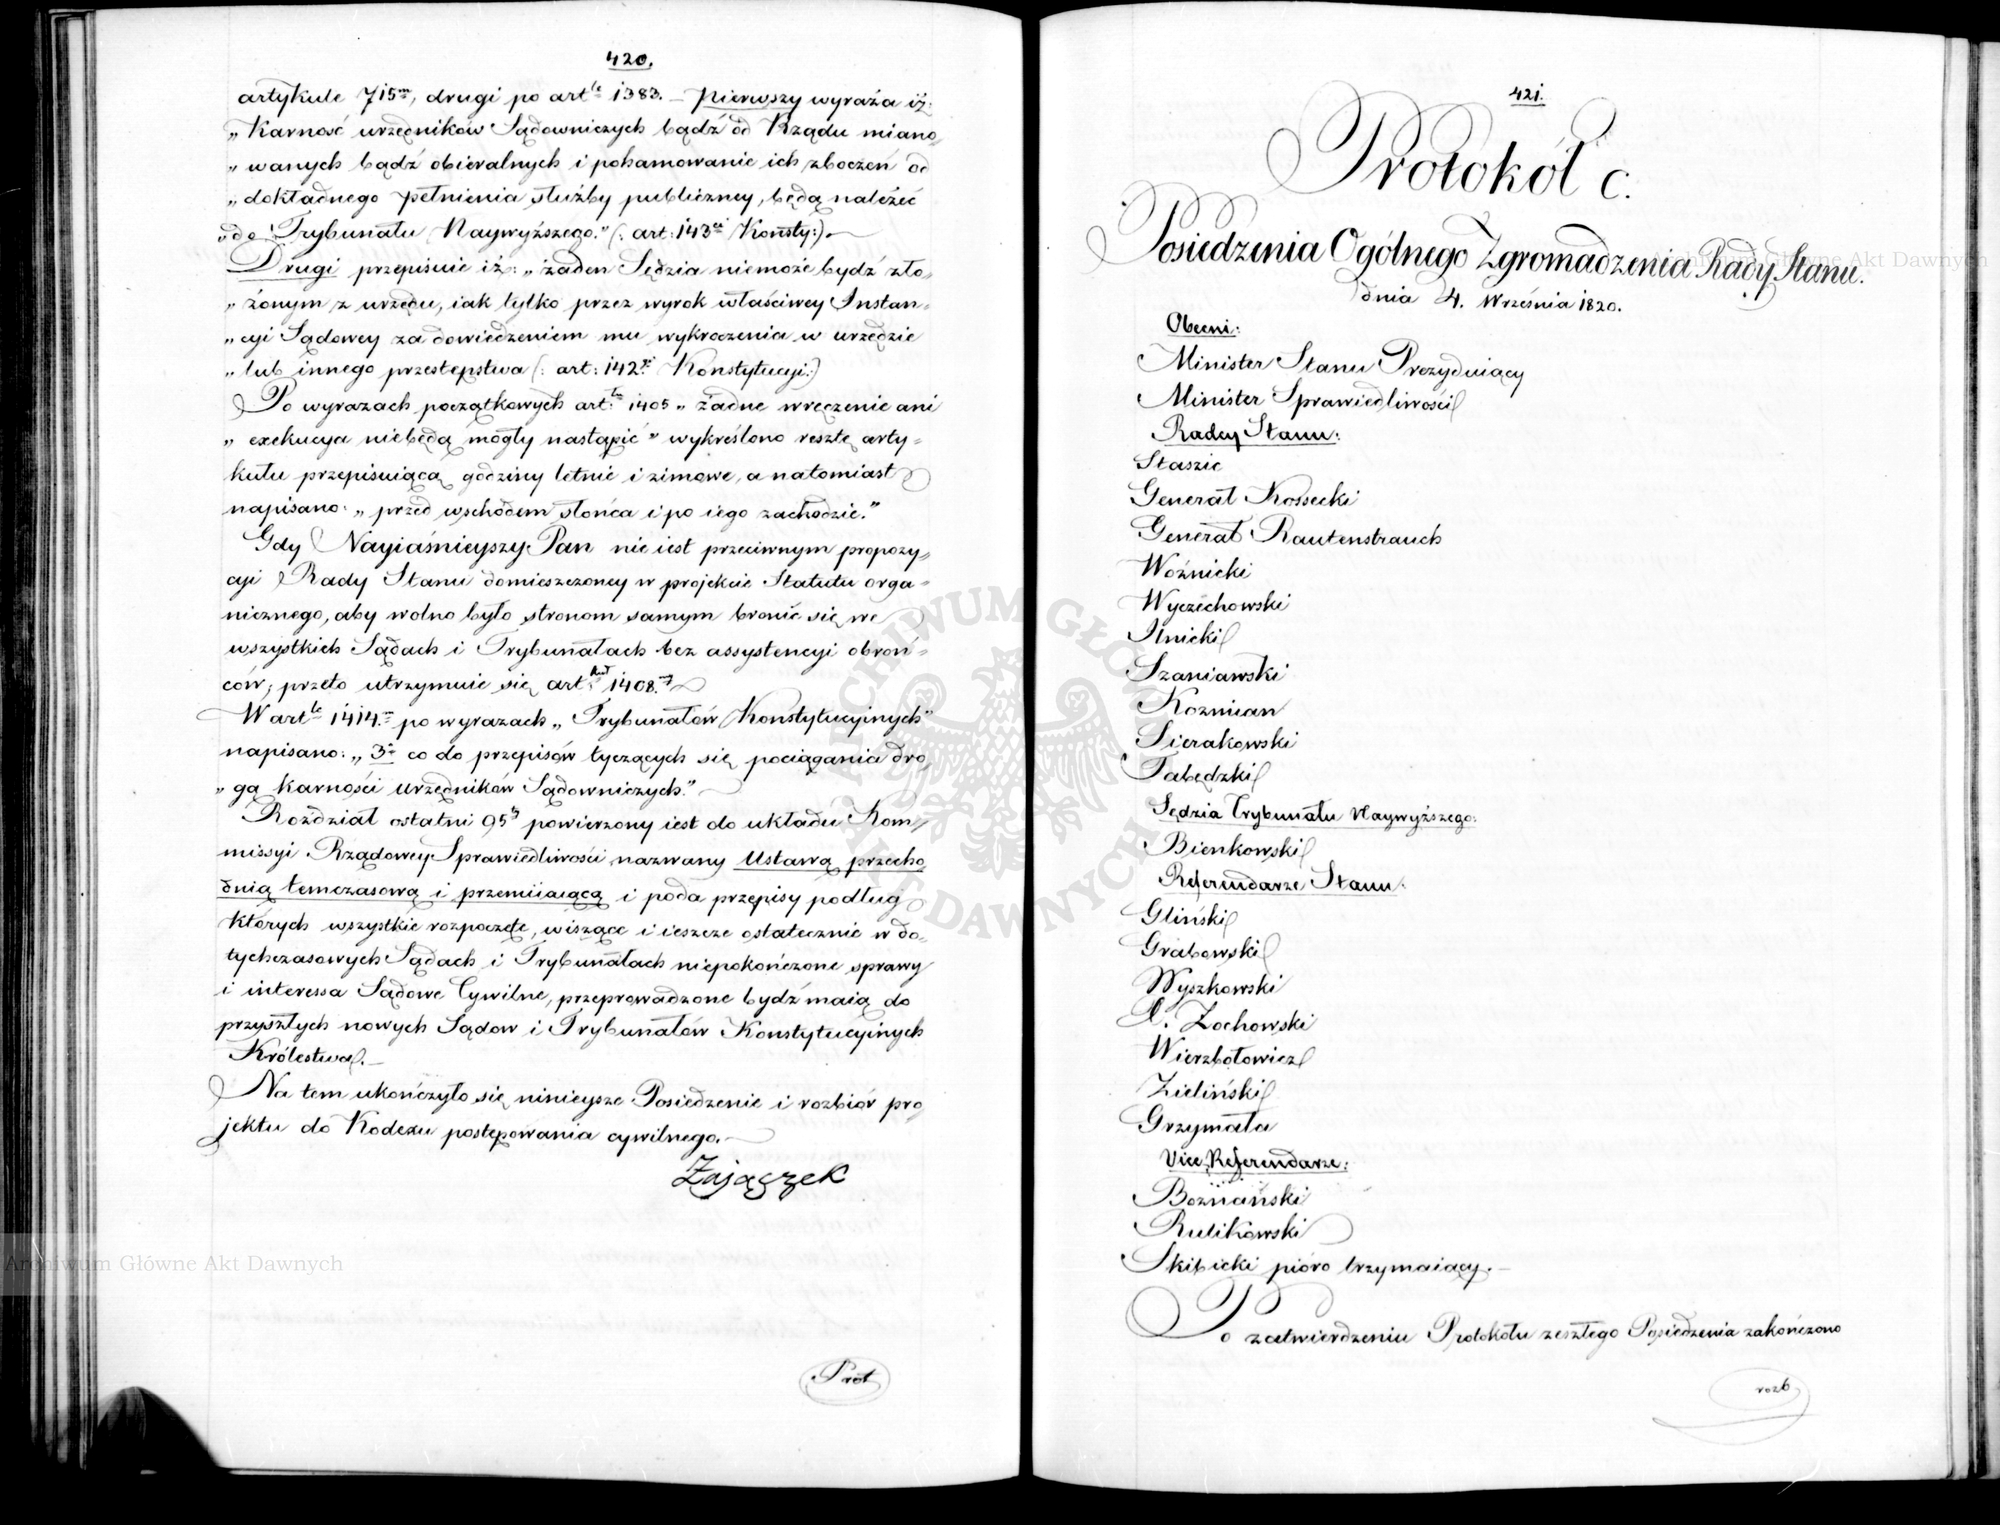 420.
artykule 715m, drugi po artle 1383. – pierwszy wyraźa iż:
„Karność urzędników Sądowniczych bądź od Rządu miano,
„wanych bądź obieralnych i pohamowanie ich zboczeń od
„dokładnego pełnienia służby publiczney, będą należeć
„do Trybunału Naywyższego." (: art: 143ci Konsty:). –
Drugi przepisuie iż: „żaden Sędzia niemoże bydź zło-
„żonym z urzędu, iak tylko przez wyrok właściwey Instan-
„cyi Sądowey za dowiedzeniem mu wykroczenia w urzędzie
„lub innego przestępstwa (: art: 142gi Konstytucyi:)
Po wyrazach początkowych art:łu 1405 „żadne wręczenie ani
„exekucya niebędą mogły nastąpić" wykreślono resztę arty-
kułu przepisuiącą godziny letnie i zimowe, a natomiast
napisano: „przed wschodem słońca i po iego zachodzie."
Gdy Nayiaśnieyszy Pan nie iest przeciwnym propozy-
cyi Rady Stanu domieszczoney w projekcie Statutu orga-
nicznego, aby wolno było stronom samym bronić się we
wszystkich Sądach i Trybunałach bez assystencyi obroń-
ców; przeto utrzymuie się art:kuł 1408.y
W artle 1414.m po wyrazach „Trybunałów Konstytucyinych"
napisano: „3e co do przepisów tyczących się pociągania dro,
„gą karności urzędników Sądowniczych."
Rozdział ostatni 95ty powierzony iest do układu Kom-
missyi Rządowey Sprawiedliwości nazwany Ustawą przecho
dnią temczasową i przemiiaiącą i poda przepisy podług
których wszystkie rozpoczęte, wiszące i ieszcze ostatecznie w do-
tychczasowych Sądach i Trybunałach niepokończone sprawy
i interessa Sądowe Cywilne, przeprowadzone bydź maią do
przyszłych nowych Sądow i Trybunałów Konstytucyinych
Królestwa. –
Na tem ukończyło się ninieysze Posiedzenie i rozbiór pro,
jektu do Kodexu postępowania cywilnego. –
Zajączek
Prot
421.
Protokół C.
Posiedzenia Ogólnego Zgromadzenia Rady Stanu.
dnia 4. Września 1820.
Obecni:
Minister Stanu Prezyduiący
Minister Sprawiedliwości
Radcy Stanu:
Staszic
Generał Kossecki
Generał Rautenstrauch
Woźnicki
Wyczechowski
Ilnicki
Szaniawski
Kozmian
Sierakowski
Łabędzki
Sędzia Trybunału Naywyższego:
Bienkowski
Referendarze Stanu:
Gliński
Grabowski
Wyszkowski
X. Zochowski
Wierzbołowicz
Zieliński
Grzymała
Vice Referendarze:
Boznański
Rulikowski
Skibicki pióro trzymaiący. –
Po zatwierdzeniu Protokołu zeszłego Posiedzenia zakończono
rozb
ARCHIWUM GŁÓWNE AKT DAWNYCH
Archiwum Główne Akt Dawnych
Archiwum Główne Akt Dawnych